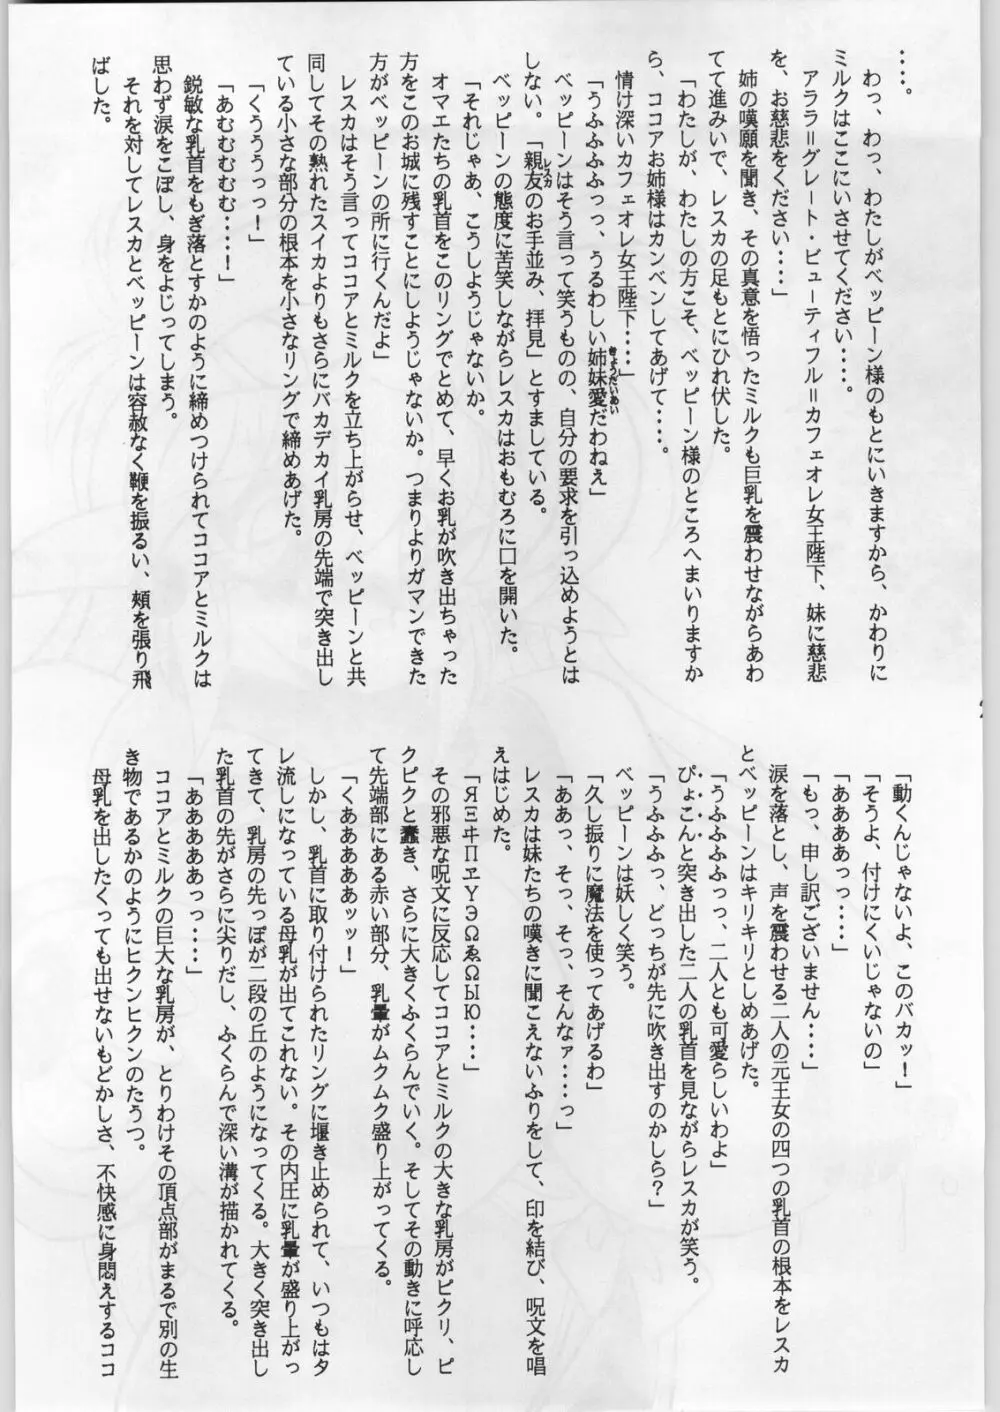 ‥‥。
わっ、わっ、わたしがベッピーン様のもとにいきますから、かわりに
ミルクはここにいさせてください‥‥。
アララ＝グレート・ビューティフル＝カフェオレ女王陛下、妹に慈悲
を、お慈悲をください‥‥」
姉の嘆願を聞き、その真意を悟ったミルクも巨乳を震わせながらあわ
てて進みいで、レスカの足もとにひれ伏した。
「わたしが、わたしの方こそ、ベッピーン様のところへまいりますか
ら、ココアお姉様はカンベンしてあげて‥‥。
情け深いカフェオレ女王陛下‥‥」
「うふふふふっっ、うるわしい姉妹愛だわねえ」
きょうだいあい
ベッピーンはそう言って笑うものの、自分の要求を引っ込めようとは
しない。「親友のお手並み、拝見」とすましている。
レスカ
ベッピーンの態度に苦笑しながらレスカはおもむろに口を開いた。
「それじゃあ、こうしようじゃないか。
オマエたちの乳首をこのリングでとめて、早くお乳が吹き出ちゃった
方をこのお城に残すことにしようじゃないか。つまりよりガマンできた
方がベッピーンの所に行くんだよ」
レスカはそう言ってココアとミルクを立ち上がらせ、ベッピーンと共
同してその熟れたスイカよりもさらにバカデカイ乳房の先端で突き出し
ている小さな部分の根本を小さなリングで締めあげた。
「くうううっっ！」
「あむむむむむ‥‥！」
鋭敏な乳首をもぎ落とすかのように締めつけられてココアとミルクは
思わず涙をこぼし、身をよじってしまう。
それを対してレスカとベッピーンは容赦なく鞭を振るい、頬を張り飛
ばした。
「動くんじゃないよ、このバカッ！」
「そうよ、付けにくいじゃないの」
「ああああっっ‥‥」
「もっ、申し訳ございません‥‥」
涙を落とし、声を震わせる二人の元王女の四つの乳首の根本をレスカ
とベッピーンはキリキリとしめあげた。
「うふふふふっっ、二人とも可愛らしいわよ」
ぴょこんと突き出した二人の乳首を見ながらレスカが笑う。
「うふふふっ、どっちが先に吹き出すのかしら？」
ベッピーンは妖しく笑う。
「久し振りに魔法を使ってあげるわ」
「ああっ、そっ、そっ、そんなァ‥‥っ」
レスカは妹たちの嘆きに聞こえないふりをして、印を結び、呪文を唱
えはじめた。
「ЯΞヰПヱΥЭΩゑΩЫЮ‥‥」
その邪悪な呪文に反応してココアとミルクの大きな乳房がピクリ、ピ
クピクと蠢き、さらに大きくふくらんでいく。そしてその動きに呼応し
て先端部にある赤い部分、乳暈がムクムク盛り上がってくる。
「くああああああッッ！」
しかし、乳首に取り付けられたリングに堰き止められて、いつもはタ
レ流しになっている母乳が出てこれない。その内圧に乳暈が盛り上がっ
てきて、乳房の先っぽが二段の丘のようになってくる。大きく突き出し
た乳首の先がさらに尖りだし、ふくらんで深い溝が描かれてくる。
「ああああああっっ‥‥」
ココアとミルクの巨大な乳房が、とりわけその頂点部がまるで別の生
き物であるかのようにヒクンヒクンのたうつ。
母乳を出したくっても出せないもどかしさ、不快感に身悶えするココ